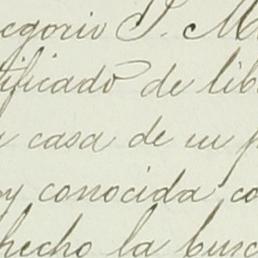 egorio P. M
tificado de lib
casa de su p
y conocida co
hecho la busc